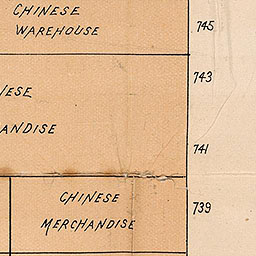 CHINESE
WAREHOUSE
745
743
NESE
ANDISE
741
CHINESE
MERCHANDISE
739